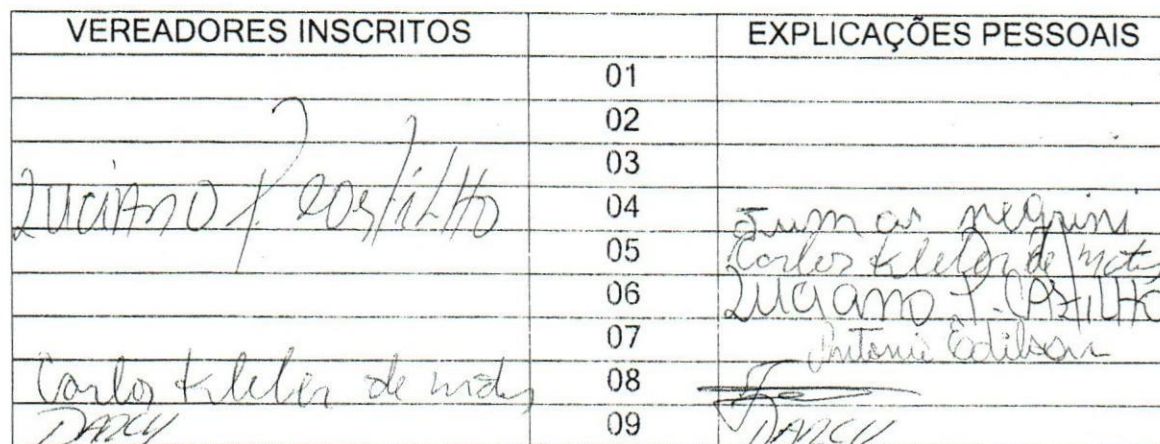 VEREADORES INSCRITOS EXPLICAÇÕES PESSOAIS
01
02
03
Luciano P. Castilho 04 negrini
05 Carlos Kleber de Matos
06 Luciano P. Castilho
07 Antonio Edilson
Carlos Kleber de Matos 08
DARCY 09 DARCY